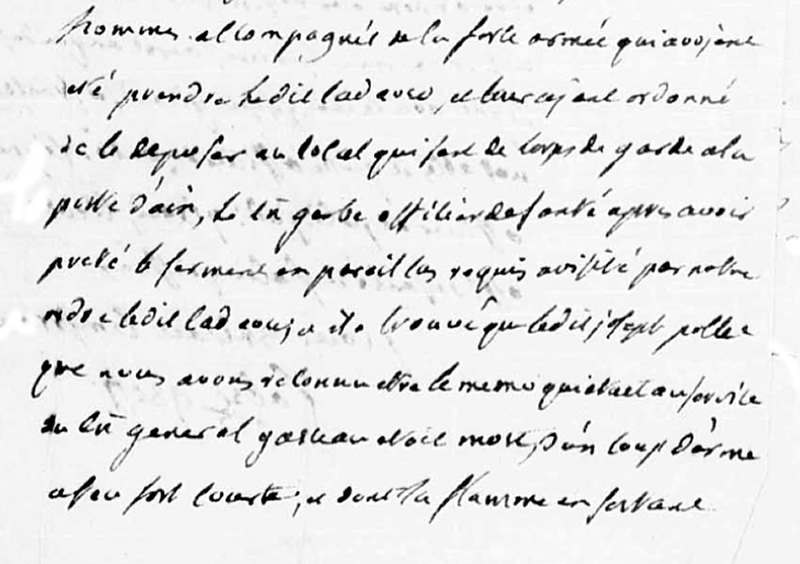 hommes accompagnés de la force armée qui avojent
eté prendre ledit cadavre, et leur ajant ordonné
de le deposer au local qui sert de corps de garde a la
porte d'ain, le cn gerbe officier de santé apres avoir
preté le serment en pareil cas requis a visité par notre
ordre ledit cadavre, et il a trouvé que ledit joseph
que nous avons reconnu etre le meme qui etoit au service
du cn general gasteau etoit mort, d'un coup d'arme
a feu fort courte; et dont la flamme en sortant